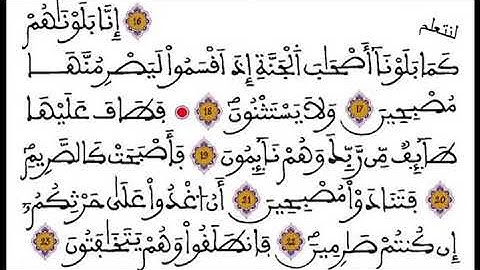 لنتعلم
16 إِنَّا بَلَوْنَاهُمْ
كَمَا بَلَوْنَآ أَصْحَابَ ٱلْجَنَّةِ إِذَ اَقْسَمُواْ لَيَصْرِمُنَّهَا
مُصْبِحِينَ 17 وَلَا يَسْتَثْنُونَ 18 فَطَافَ عَلَيْهَا
طَآئِفٌ مِّن رَّبِّكَ وَهُمْ نَآئِمُونَ 19 فَأَصْبَحَتْ كَالصَّرِيمِ
20 فَتَنَادَوْاْ مُصْبِحِينَ 21 أَنُ اُغْدُواْ عَلَىٰ حَرْثِكُمُۥ
إِن كُنتُمْ صَارِمِينَ 22 فَانطَلَقُواْ وَهُمْ يَتَخَافَتُونَ 23